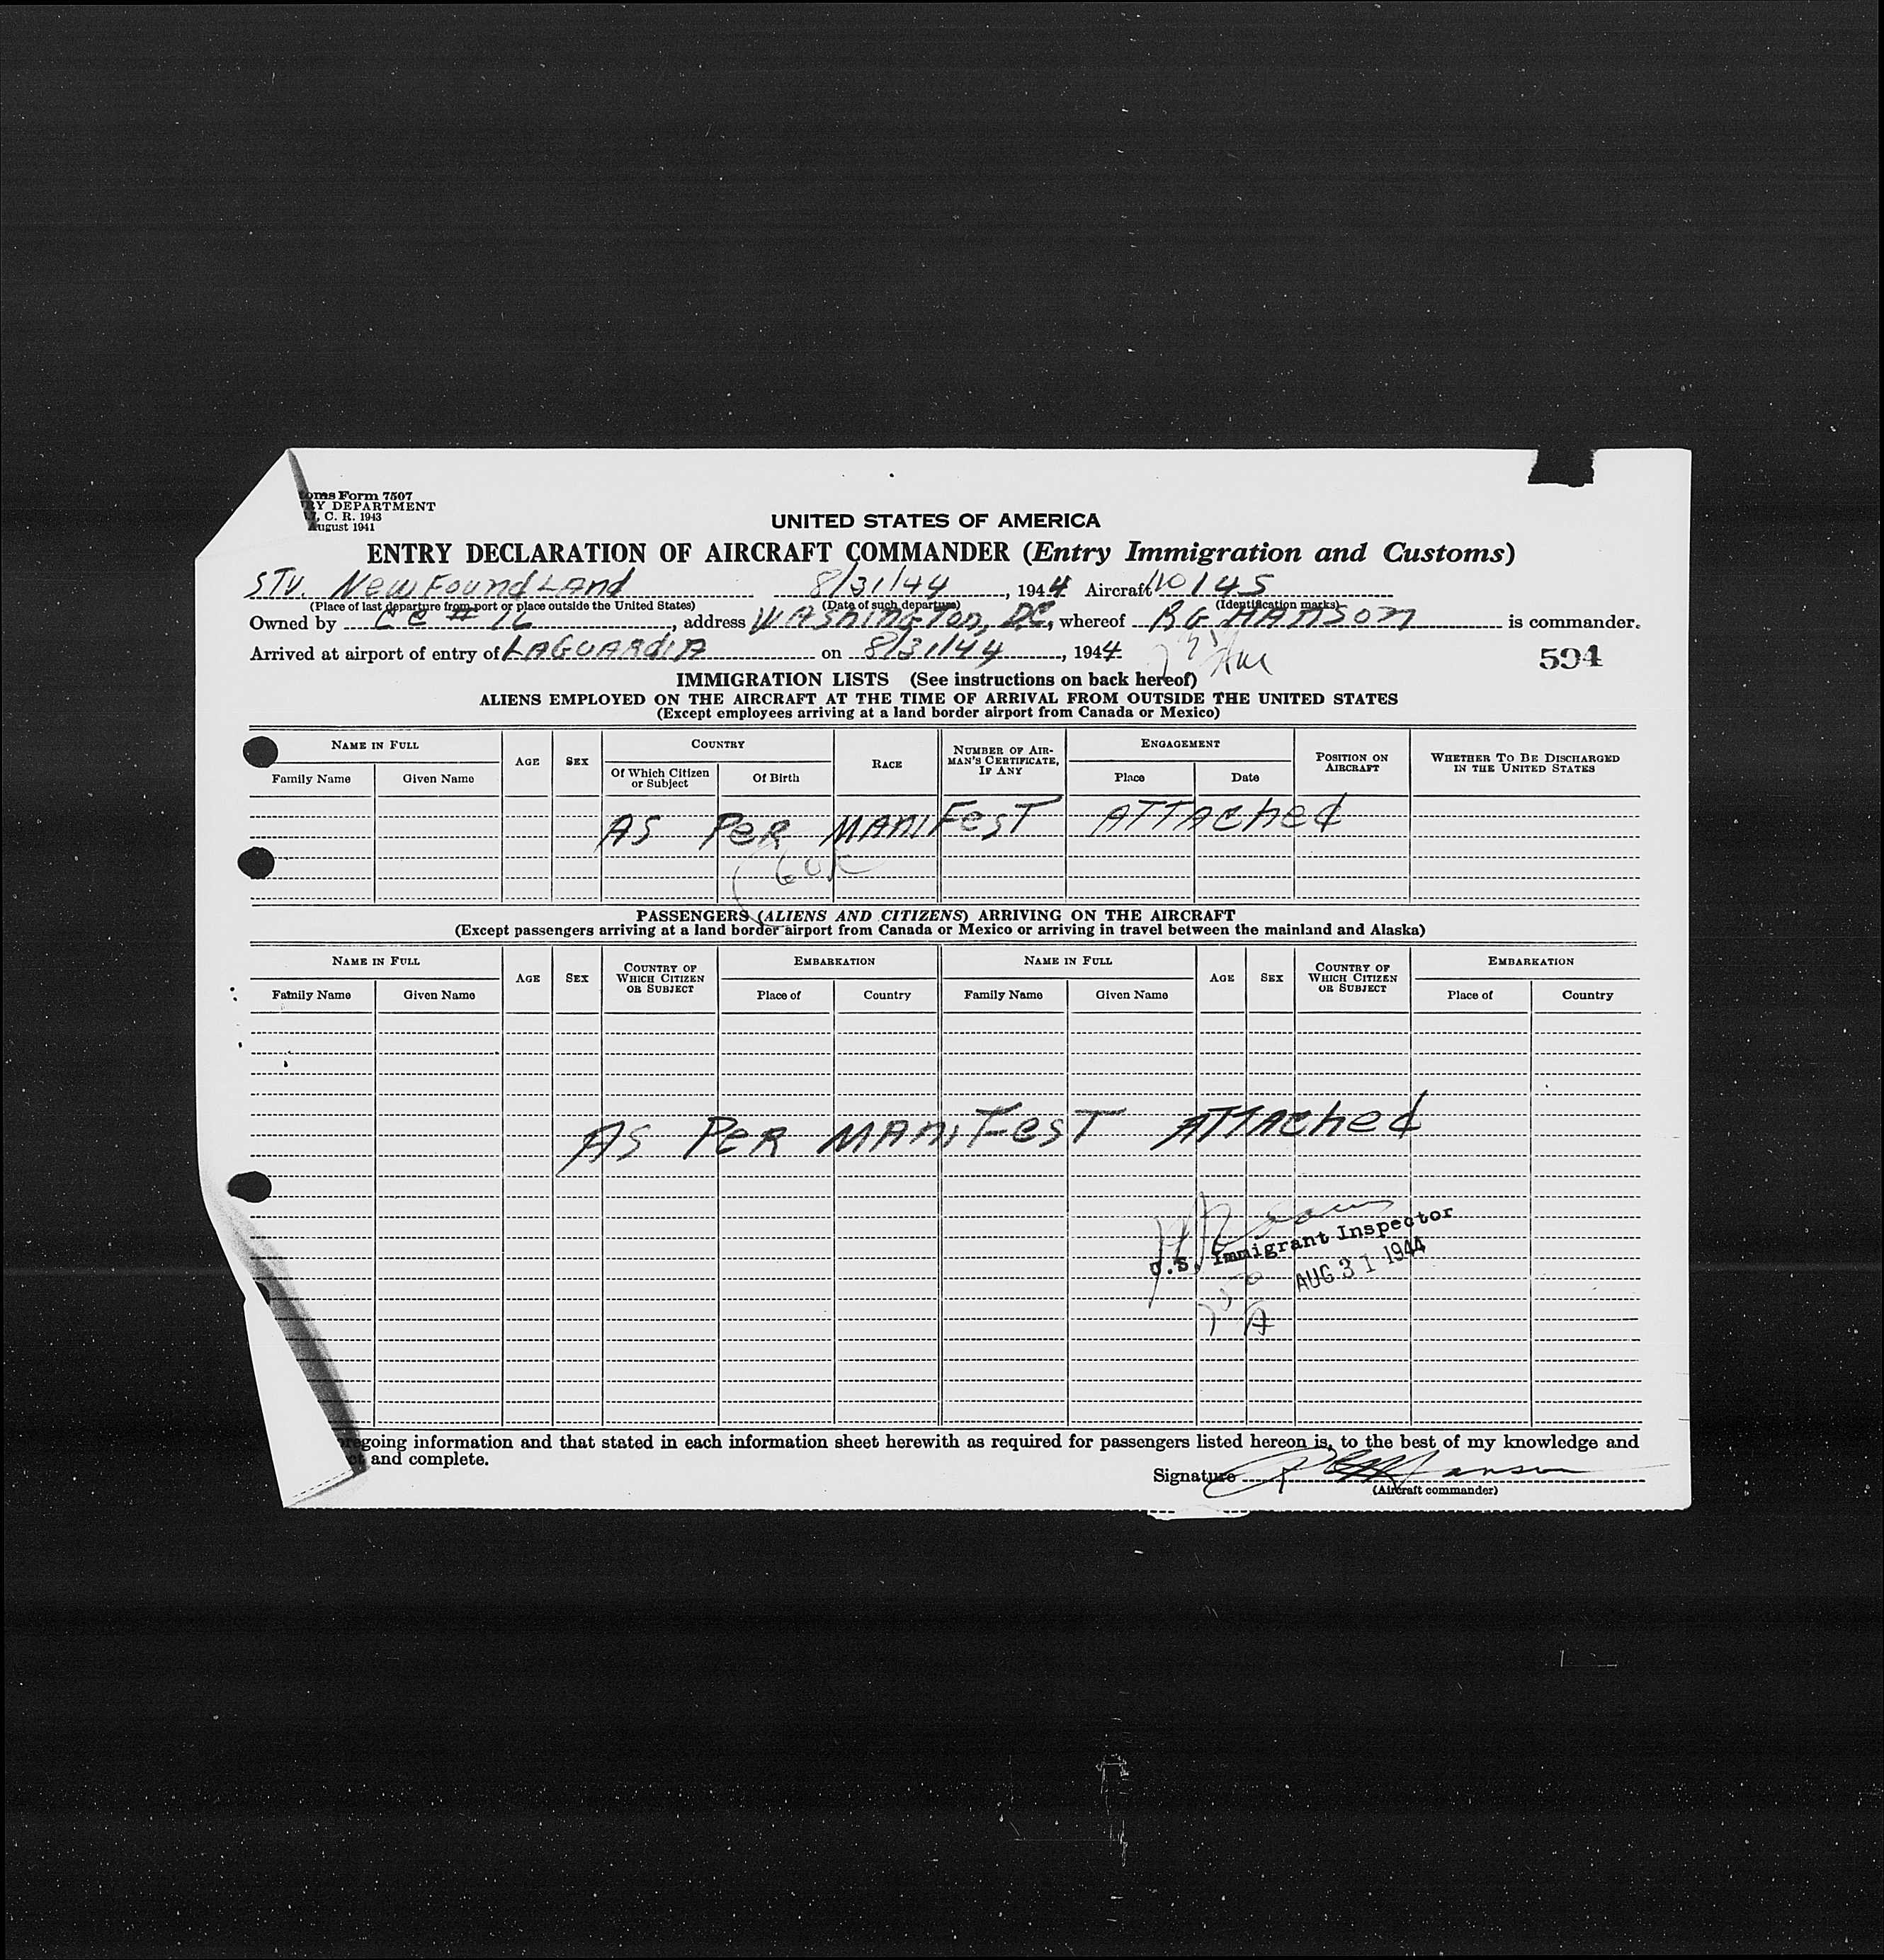 oms Form 7507
RY DEPARTMENT
C. R. 1943
August 1941
UNITED STATES OF AMERICA
ENTRY DECLARATION OF AIRCRAFT COMMANDER (Entry Immigration and Customs)
STV. NewFoundLAnd 8/31/44, 1944 Aircraft 10145
(Place of last departure from port or place outside the United States) (Date of such departure) (Identification marks)
Owned by CC # 16, address WAShingTon, DC, whereof RG HANSON is commander.
Arrived at airport of entry of LAGUARdiA on 8/31/44, 1944
594
IMMIGRATION LISTS (See instructions on back hereof)
ALIENS EMPLOYED ON THE AIRCRAFT AT THE TIME OF ARRIVAL FROM OUTSIDE THE UNITED STATES
(Except employees arriving at a land border airport from Canada or Mexico)
NAME IN FULL AGE SEX COUNTRY RACE NUMBER OF AIRMAN'S CERTIFICATE, IF ANY ENGAGEMENT POSITION ON AIRCRAFT WHETHER TO BE DISCHARGED IN THE UNITED STATES
Family Name Given Name Of Which Citizen or Subject Of Birth Place Date
AS PeR MANiFesT ATTAched
PASSENGERS (ALIENS AND CITIZENS) ARRIVING ON THE AIRCRAFT
(Except passengers arriving at a land border airport from Canada or Mexico or arriving in travel between the mainland and Alaska)
NAME IN FULL AGE SEX COUNTRY OF WHICH CITIZEN OR SUBJECT EMBARKATION NAME IN FULL AGE SEX COUNTRY OF WHICH CITIZEN OR SUBJECT EMBARKATION
Family Name Given Name Place of Country Family Name Given Name Place of Country
AS PeR MANiFesT ATTAched
U.S. Immigrant Inspector
AUG 31 1944
going information and that stated in each information sheet herewith as required for passengers listed hereon is, to the best of my knowledge and
and complete.
Signature RG Hanson
(Aircraft commander)